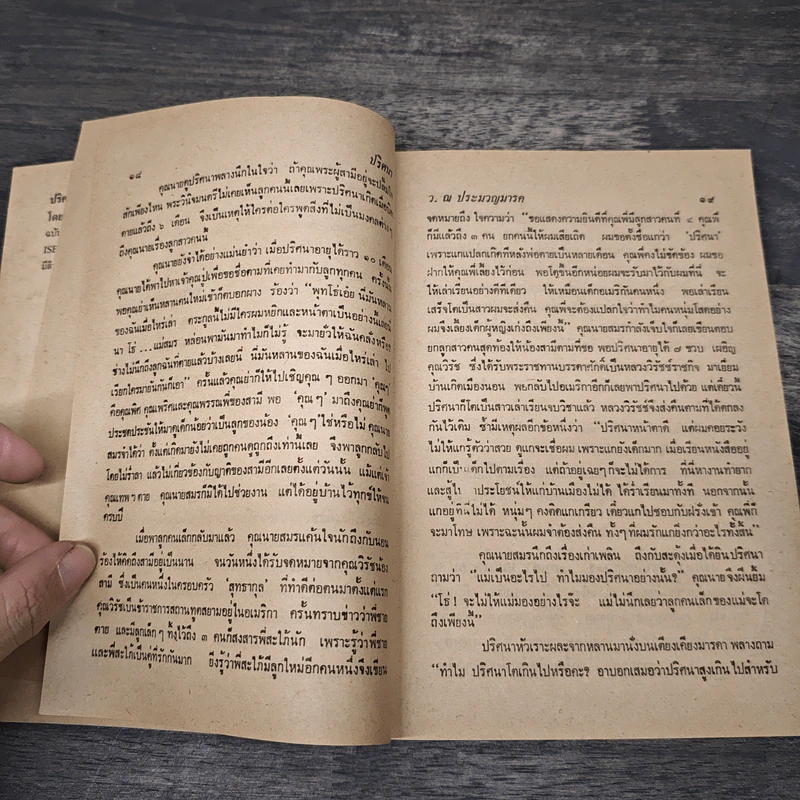 ปริศ
โดย
ฉบับ
ISB
ปริศนา
๑๘
คุณนายดูปริศนาพลางนึกในใจว่า ถ้าคุณพระผู้สามีอยู่จะปลื้มใจ
สักเพียงไหน พระวินิจมนตรีไม่เคยเห็นลูกคนนี้เลยเพราะปริศนาเกิดเมื่อบิดา
ตายแล้วถึง ๖ เดือน จึงเป็นเหตุให้ใครต่อใครพูดสิ่งที่ไม่เป็นมงคลต่าง ๆ
ถึงคุณนายเรื่องลูกสาวคนนี้
คุณนายยังจำได้อย่างแม่นยำว่า เมื่อปริศนาอายุได้ราว ๑๐ เดือน
คุณนายได้พาไปหาเจ้าคุณปู่เพื่อขอชื่อตามที่เคยทำมากับลูกทุกคน ครั้งนั้น
พอคุณย่าเห็นหลานคนใหม่เข้าก็ตบอกผาง ร้องว่า “พุทโธ่เอ๋ย นี่มันหลาน
ของฉันเมื่อไหร่เล่า ตระกูลนี้ไม่มีใครผมหยิกและหน้าตาเป็นอย่างนี้เลยนี่
นา โธ่...แม่สมร หล่อนพามันมาทำไมก็ไม่รู้ จะมายั่วให้ฉันคลั่งหรือ
ช่างไม่นึกถึงลูกฉันที่ตายแล้วบ้างเลยนี่ นี่มันหลานของฉันเมื่อไหร่เล่า ไป
เรียกใครมายันกันก็เอา” ครั้นแล้วคุณย่าก็ให้ไปเชิญคุณ ๆ ออกมา ‘คุณๆ’
คือคุณพิศ คุณเพริศและคุณพรรณพี่ของสามี พอ ‘คุณๆ’ มาถึงคุณย่าก็พูด
ประชดประชันให้มาดูเด็กน้อยว่าเป็นลูกของน้อง ‘คุณๆ’ ใช่หรือไม่ คุณนาย
สมรจำได้ว่า ตั้งแต่เกิดมายังไม่เคยถูกคนดูถูกถึงเท่านี้เลย จึงพาลูกกลับไป
โดยไม่ร่ำลา แล้วไม่เกี่ยวข้องกับญาติของสามีอีกเลยตั้งแต่วันนั้น แม้แต่เจ้า
คุณเทพ ฯ ตาย คุณนายสมรก็มิได้ไปช่วยงาน แต่ได้อยู่บ้านไว้ทุกข์ให้จน
ครบปี
เมื่อพาลูกคนเล็กกลับมาแล้ว คุณนายสมรแค้นใจนักถึงกับนอน
ร้องไห้คิดถึงสามีอยู่เป็นนาน จนวันหนึ่งได้รับจดหมายจากคุณวิรัชน้อง
สามี ซึ่งเป็นคนหนึ่งในครอบครัว ‘สุทธากุล’ ที่ทำดีต่อตนมาตั้งแต่แรก
คุณวิรัชเป็นข้าราชการสถานทูตสยามอยู่ในอเมริกา ครั้นทราบข่าวว่าพี่ชาย
ตาย และมีลูกเล็กๆ ทิ้งไว้ถึง ๓ คนก็สงสารพี่สะใภ้นัก เพราะรู้ว่าพี่ชาย
และพี่สะใภ้เป็นคู่ที่รักกันมาก ยิ่งรู้ว่าพี่สะใภ้มีลูกใหม่อีกคนหนึ่งจึงเขียน
ว. ณ ประมวญมารค
๑๙
จดหมายถึง ใจความว่า “ขอแสดงความยินดีที่คุณพี่มีลูกสาวคนที่ ๔ คุณพี่
ก็มีแล้วถึง ๓ คน ยกคนนี้ให้ผมเสียเถิด ผมขอตั้งชื่อแกว่า ‘ปริศนา’
เพราะแกแปลกเกิดทีหลังพ่อตายเป็นหลายเดือน คุณพี่คงไม่ขัดข้อง ผมขอ
ฝากให้คุณพี่เลี้ยงไว้ก่อน พอโตขึ้นอีกหน่อยผมจะรับมาไว้กับผมที่นี่ จะ
ให้เล่าเรียนอย่างดีทีเดียว ให้เหมือนเด็กอเมริกันคนหนึ่ง พอเล่าเรียน
เสร็จโตเป็นสาวผมจะส่งคืน คุณพี่จะต้องแปลกใจว่าทำไมคนหนุ่มโสดอย่าง
ผมจึงเลี้ยงเด็กผู้หญิงเก่งถึงเพียงนี้” คุณนายสมรกำลังเจ็บใจก็เลยเขียนตอบ
ยกลูกสาวคนสุดท้องให้น้องสามีตามที่ขอ พอปริศนาอายุได้ ๗ ขวบ เผอิญ
คุณวิรัช ซึ่งได้รับพระราชทานบรรดาศักดิ์เป็นหลวงวิรัชราชกิจ มาเยี่ยม
บ้านเกิดเมืองนอน พอกลับไปอเมริกาอีกก็เลยพาปริศนาไปด้วย แต่เดี๋ยวนี้
ปริศนาก็โตเป็นสาวเล่าเรียนจบวิชาแล้ว หลวงวิรัชจึงส่งคืนตามที่ได้ตกลง
กันไว้เดิม ซ้ำมีเหตุผลอีกข้อหนึ่งว่า “ปริศนาหน้าตาดี แต่ผมคอยระวัง
ไม่ให้แกรู้ตัวว่าสวย ดูแกจะเชื่อผม เพราะแกยังเด็กมาก เมื่อเรียนหนังสืออยู่
แกก็เป็นเด็กไปตามเรื่อง แต่ถ้าอยู่เฉยๆ ก็จะไม่ได้การ ที่นี่หางานทำยาก
และสู้ไปทำประโยชน์ให้แก่บ้านเมืองไม่ได้ ได้ร่ำเรียนมาทั้งที นอกจากนั้น
แกอยู่ที่นี่ไม่ได้ หนุ่มๆ คงติดแกเกรียว เดี๋ยวแกไปชอบกับฝรั่งเข้า คุณพี่ก็
จะมาโทษ เพราะฉะนั้นผมจำต้องส่งคืน ทั้งๆ ที่ผมรักแกยิ่งกว่าอะไรทั้งสิ้น”
คุณนายสมรนึกถึงเรื่องเก่าเพลิน ถึงกับสะดุ้งเมื่อได้ยินปริศนา
ถามว่า “แม่เป็นอะไรไป ทำไมมองปริศนาอย่างนั้น?” คุณนายจึงฝืนยิ้ม
“โธ่! จะไม่ให้แม่มองอย่างไรจ๊ะ แม่ไม่นึกเลยว่าลูกคนเล็กของแม่จะโต
ถึงเพียงนี้”
ปริศนาหัวเราะผละจากหลานมานั่งบนเตียงเคียงมารดา พลางถาม
“ทำไม ปริศนาโตเกินไปหรือคะ? อาบอกเสมอว่าปริศนาสูงเกินไปสำหรับ